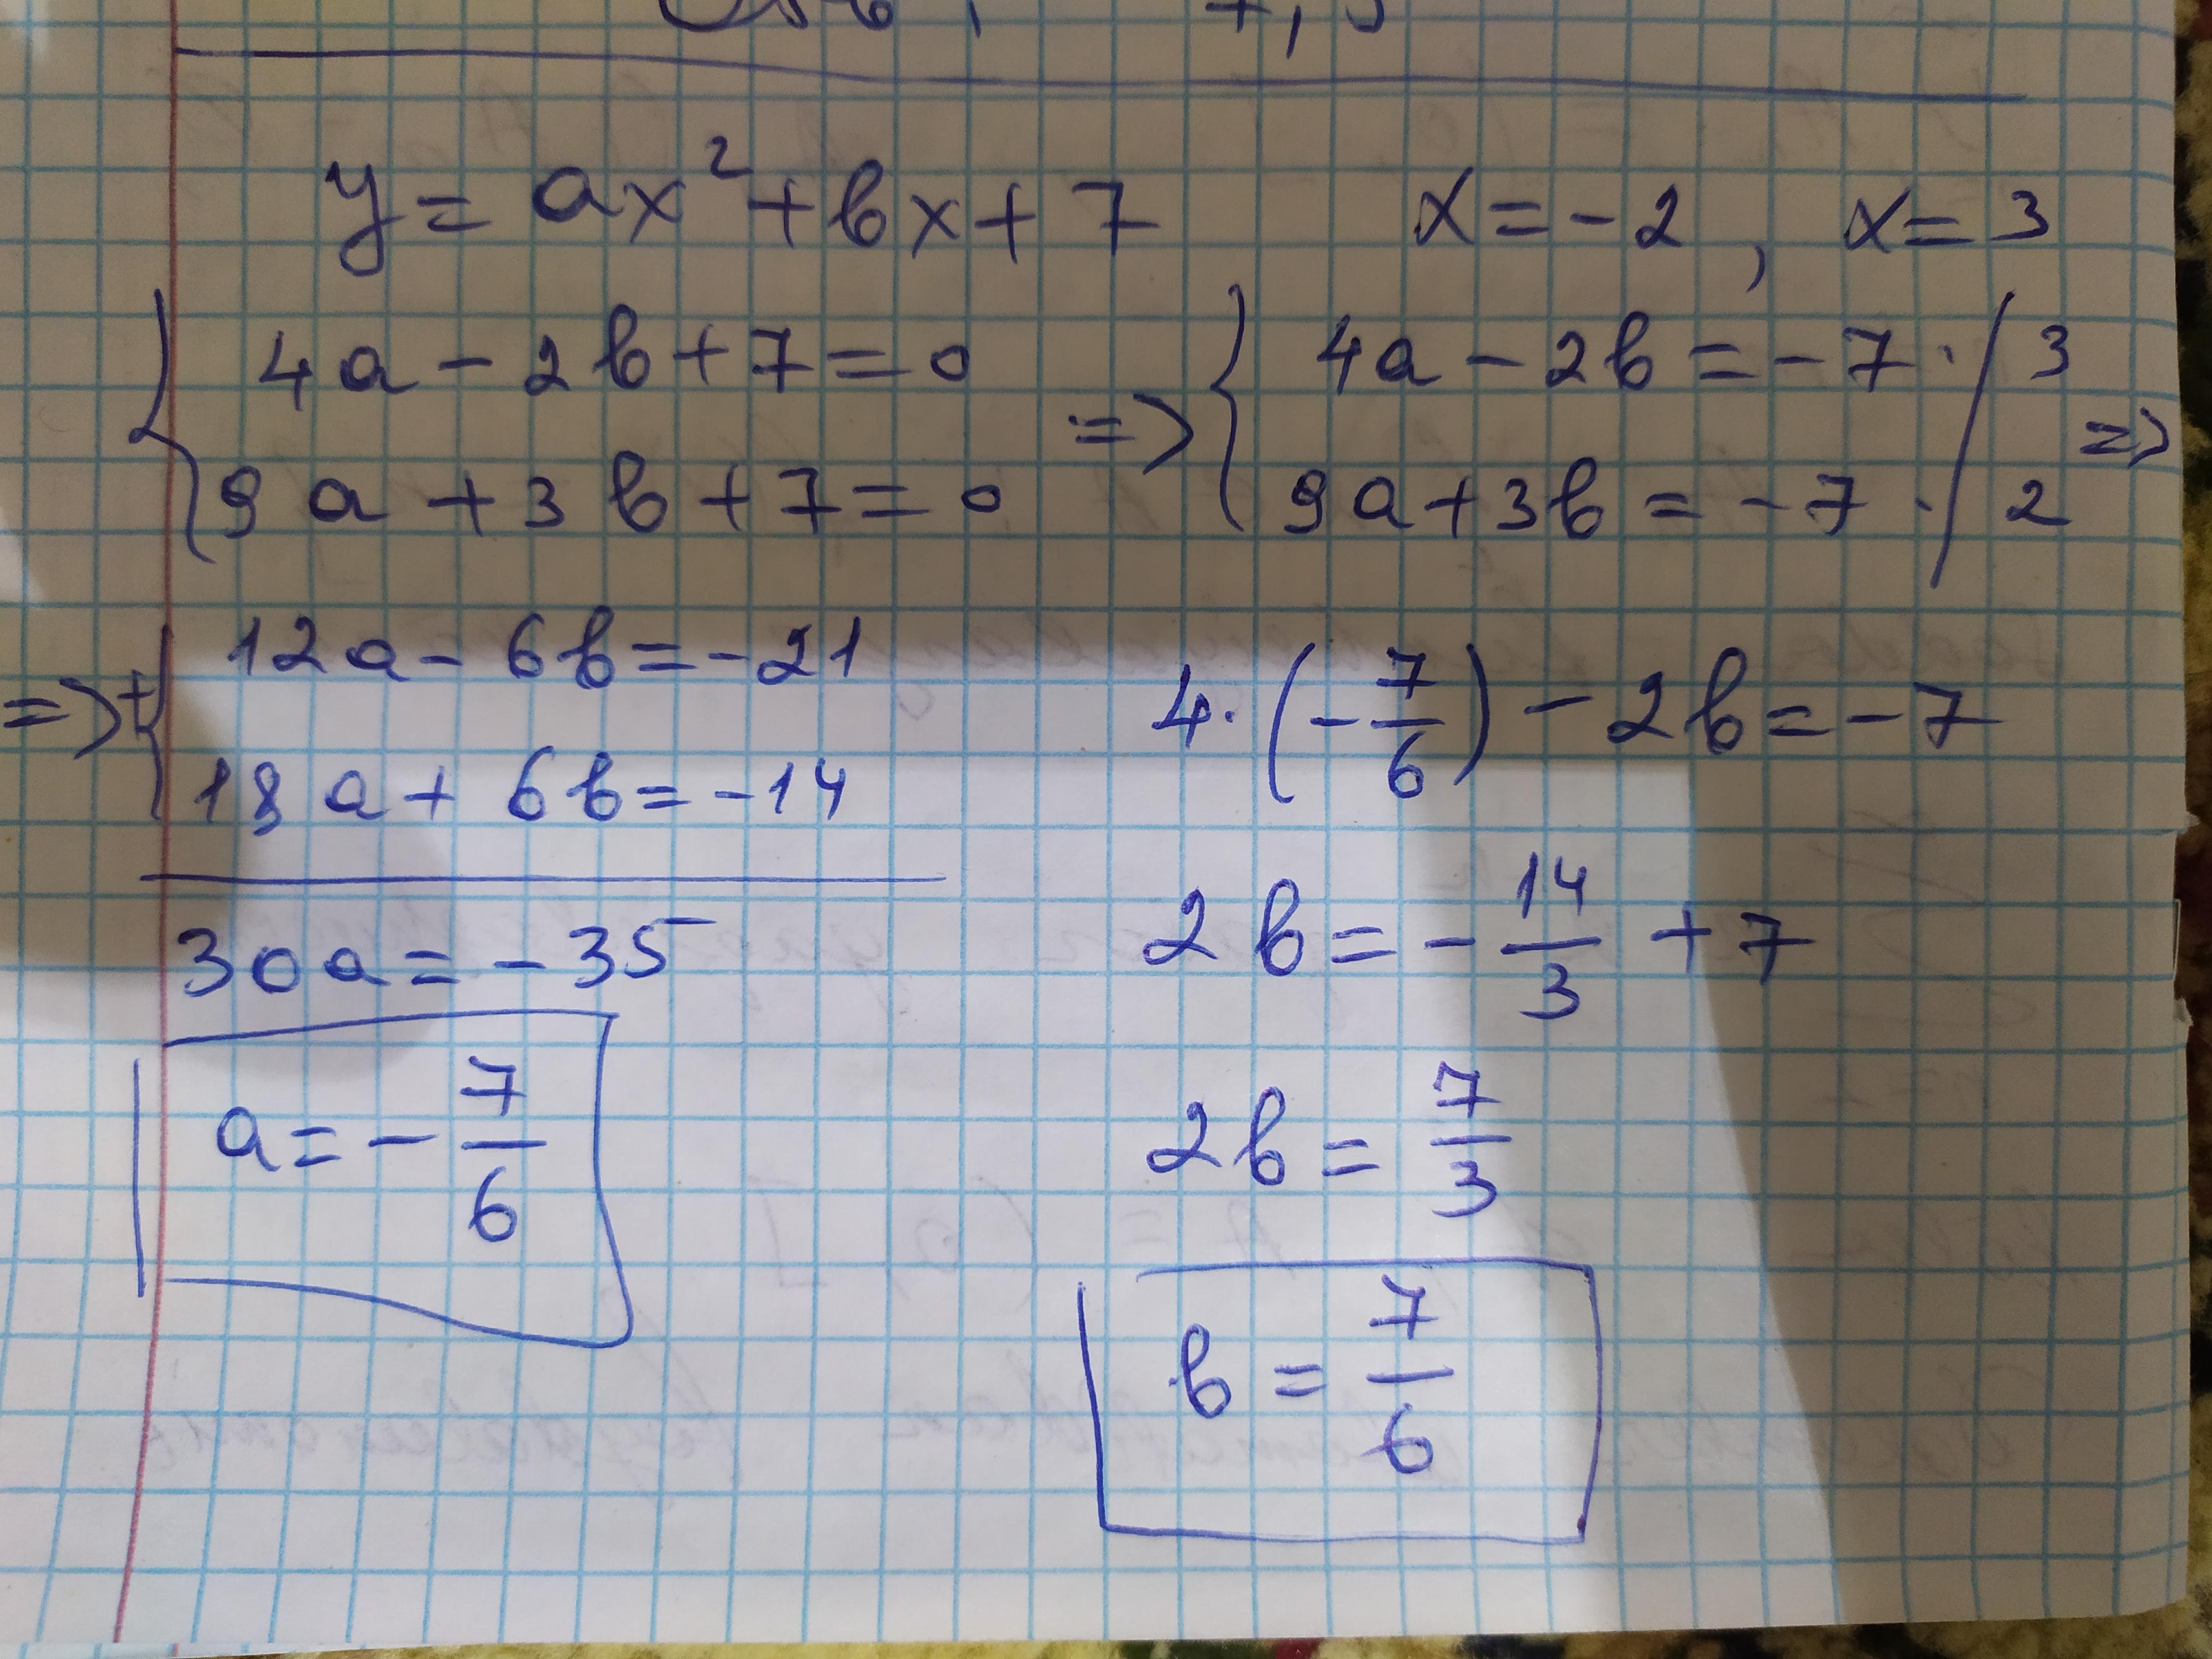 y = ax² + bx + 7 x = -2, x = 3
{ 4a - 2b + 7 = 0 => { 4a - 2b = -7 · / 3
9a + 3b + 7 = 0 9a + 3b = -7 · / 2 =>
=> + { 12a - 6b = -21
18a + 6b = -14
30a = -35
a = -7/6
4 · (-7/6) - 2b = -7
2b = -14/3 + 7
2b = 7/3
b = 7/6